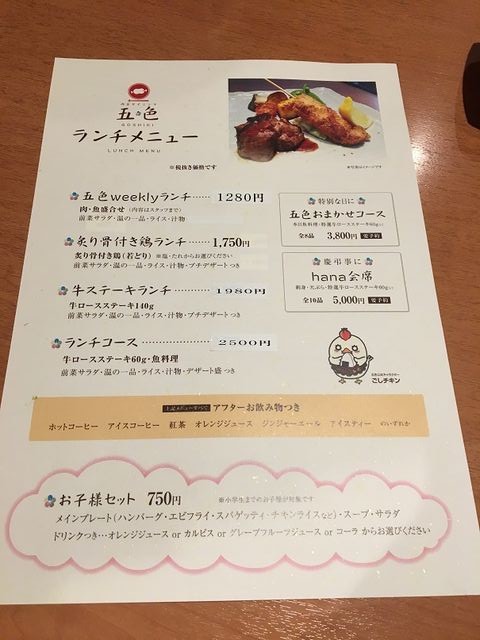 五色
GOSHIKI
ランチメニュー
LUNCH MENU
※税抜き価格です
※写真はイメージです
五色weeklyランチ…… 1280円
肉・魚盛合せ (内容はスタッフまで)
前菜サラダ・温の一品・ライス・汁物
炙り骨付き鶏ランチ…… 1,750円
炙り骨付き鶏(若どり) ※塩・たれからお選びください
前菜サラダ・温の一品・ライス・汁物・プチデザートつき
牛ステーキランチ…… 1980円
牛ロースステーキ140g
前菜サラダ・温の一品・ライス・汁物・プチデザートつき
ランチコース…… 2500円
牛ロースステーキ60g・魚料理
前菜サラダ・温の一品・ライス・汁物・デザート盛つき
特別な日に
五色おまかせコース
全8品 3,800円 要予約
慶弔事に
hana会席
刺身・天ぷら・特選牛ロースステーキ60g
全10品 5,000円 要予約
ごしチキン
上記メニューすべて アフターお飲み物つき
ホットコーヒー アイスコーヒー 紅茶 オレンジジュース ジンジャーエール アイスティー のいずれか
お子様セット 750円 ※小学生までのお子様が対象です
メインプレート(ハンバーグ・エビフライ・スパゲッティ・チキンライスなど)・スープ・サラダ
ドリンクつき…オレンジジュース or カルピス or グレープフルーツジュース or コーラ からお選びください